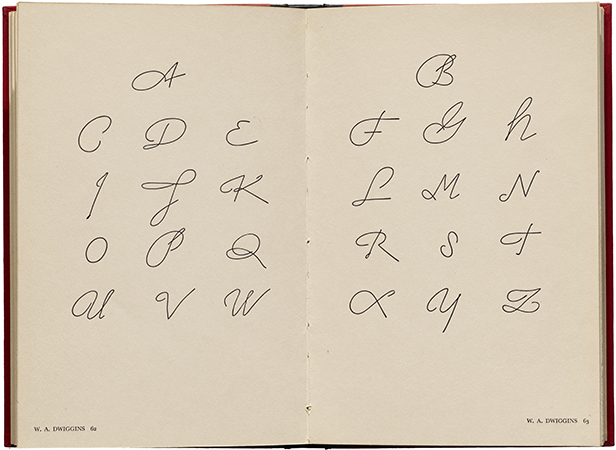 A B
C D E F G H
I J K L M N
O P Q R S T
U V W X Y Z
W. A. DWIGGINS 62
W. A. DWIGGINS 63